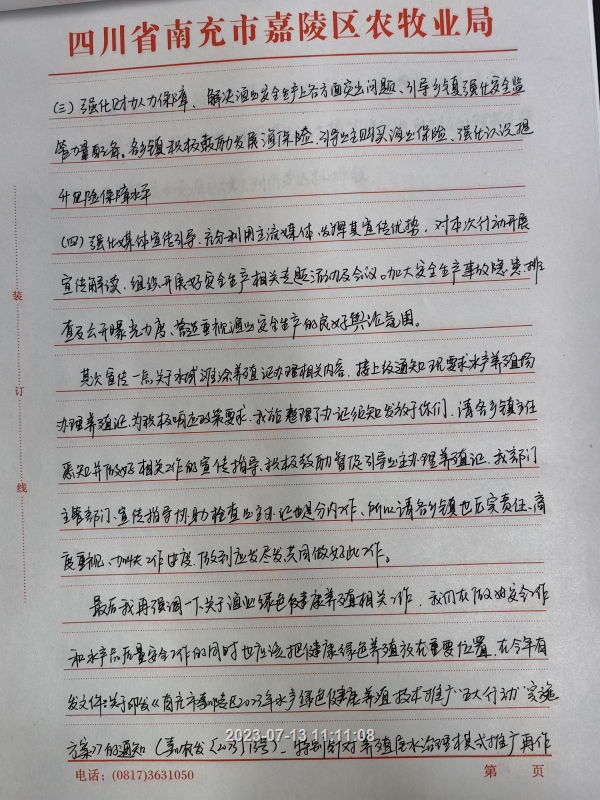 四川省南充市嘉陵区农牧业局
(三)强化财力人力保障、解决渔业安全生产上各方面突出问题、引导乡镇强化安全监
管力量配备。各乡镇积极鼓励发展渔保险、引导业主购买渔业保险、强化认识,提
升风险保障水平
(四)强化媒体宣传引导、充分利用主流媒体、发挥其宣传优势,对本次行动开展
宣传解读,组织开展好安全生产相关专题活动及会议。加大安全生产事故隐患排
查及公开曝光力度、营造重视渔业安全生产的良好舆论氛围。
其次宣传一点关于水域滩涂养殖证办理相关内容,接上级通知现要求水产养殖场
办理养殖证、为积极响应政策要求,我站整理了办证须知发放于你们,请各乡镇主任
悉知并做好相关工作的宣传指导、积极鼓励督促引导业主办理养殖证,我部门
主管部门、宣传指导协助检查业主办证也是分内工作、所以请各乡镇也压实责任、高
度重视、加快工作进度,做到应发尽发共同做好此工作。
最后我再强调一下关于渔业绿色健康养殖相关工作,我们在做好安全工作
和水产品质量安全工作的同时也应该把健康绿色养殖放在重要位置,在今年有
发文件:关于印发《南充市嘉陵区2023年水产绿色健康养殖技术推广"五大行动"实施
方案》的通知(嘉农发〔2023〕13号)、特别针对养殖尾水治理模式推广再作
2023-07-13 11:11:08
电话:(0817)3631050 第 页
装
订
线